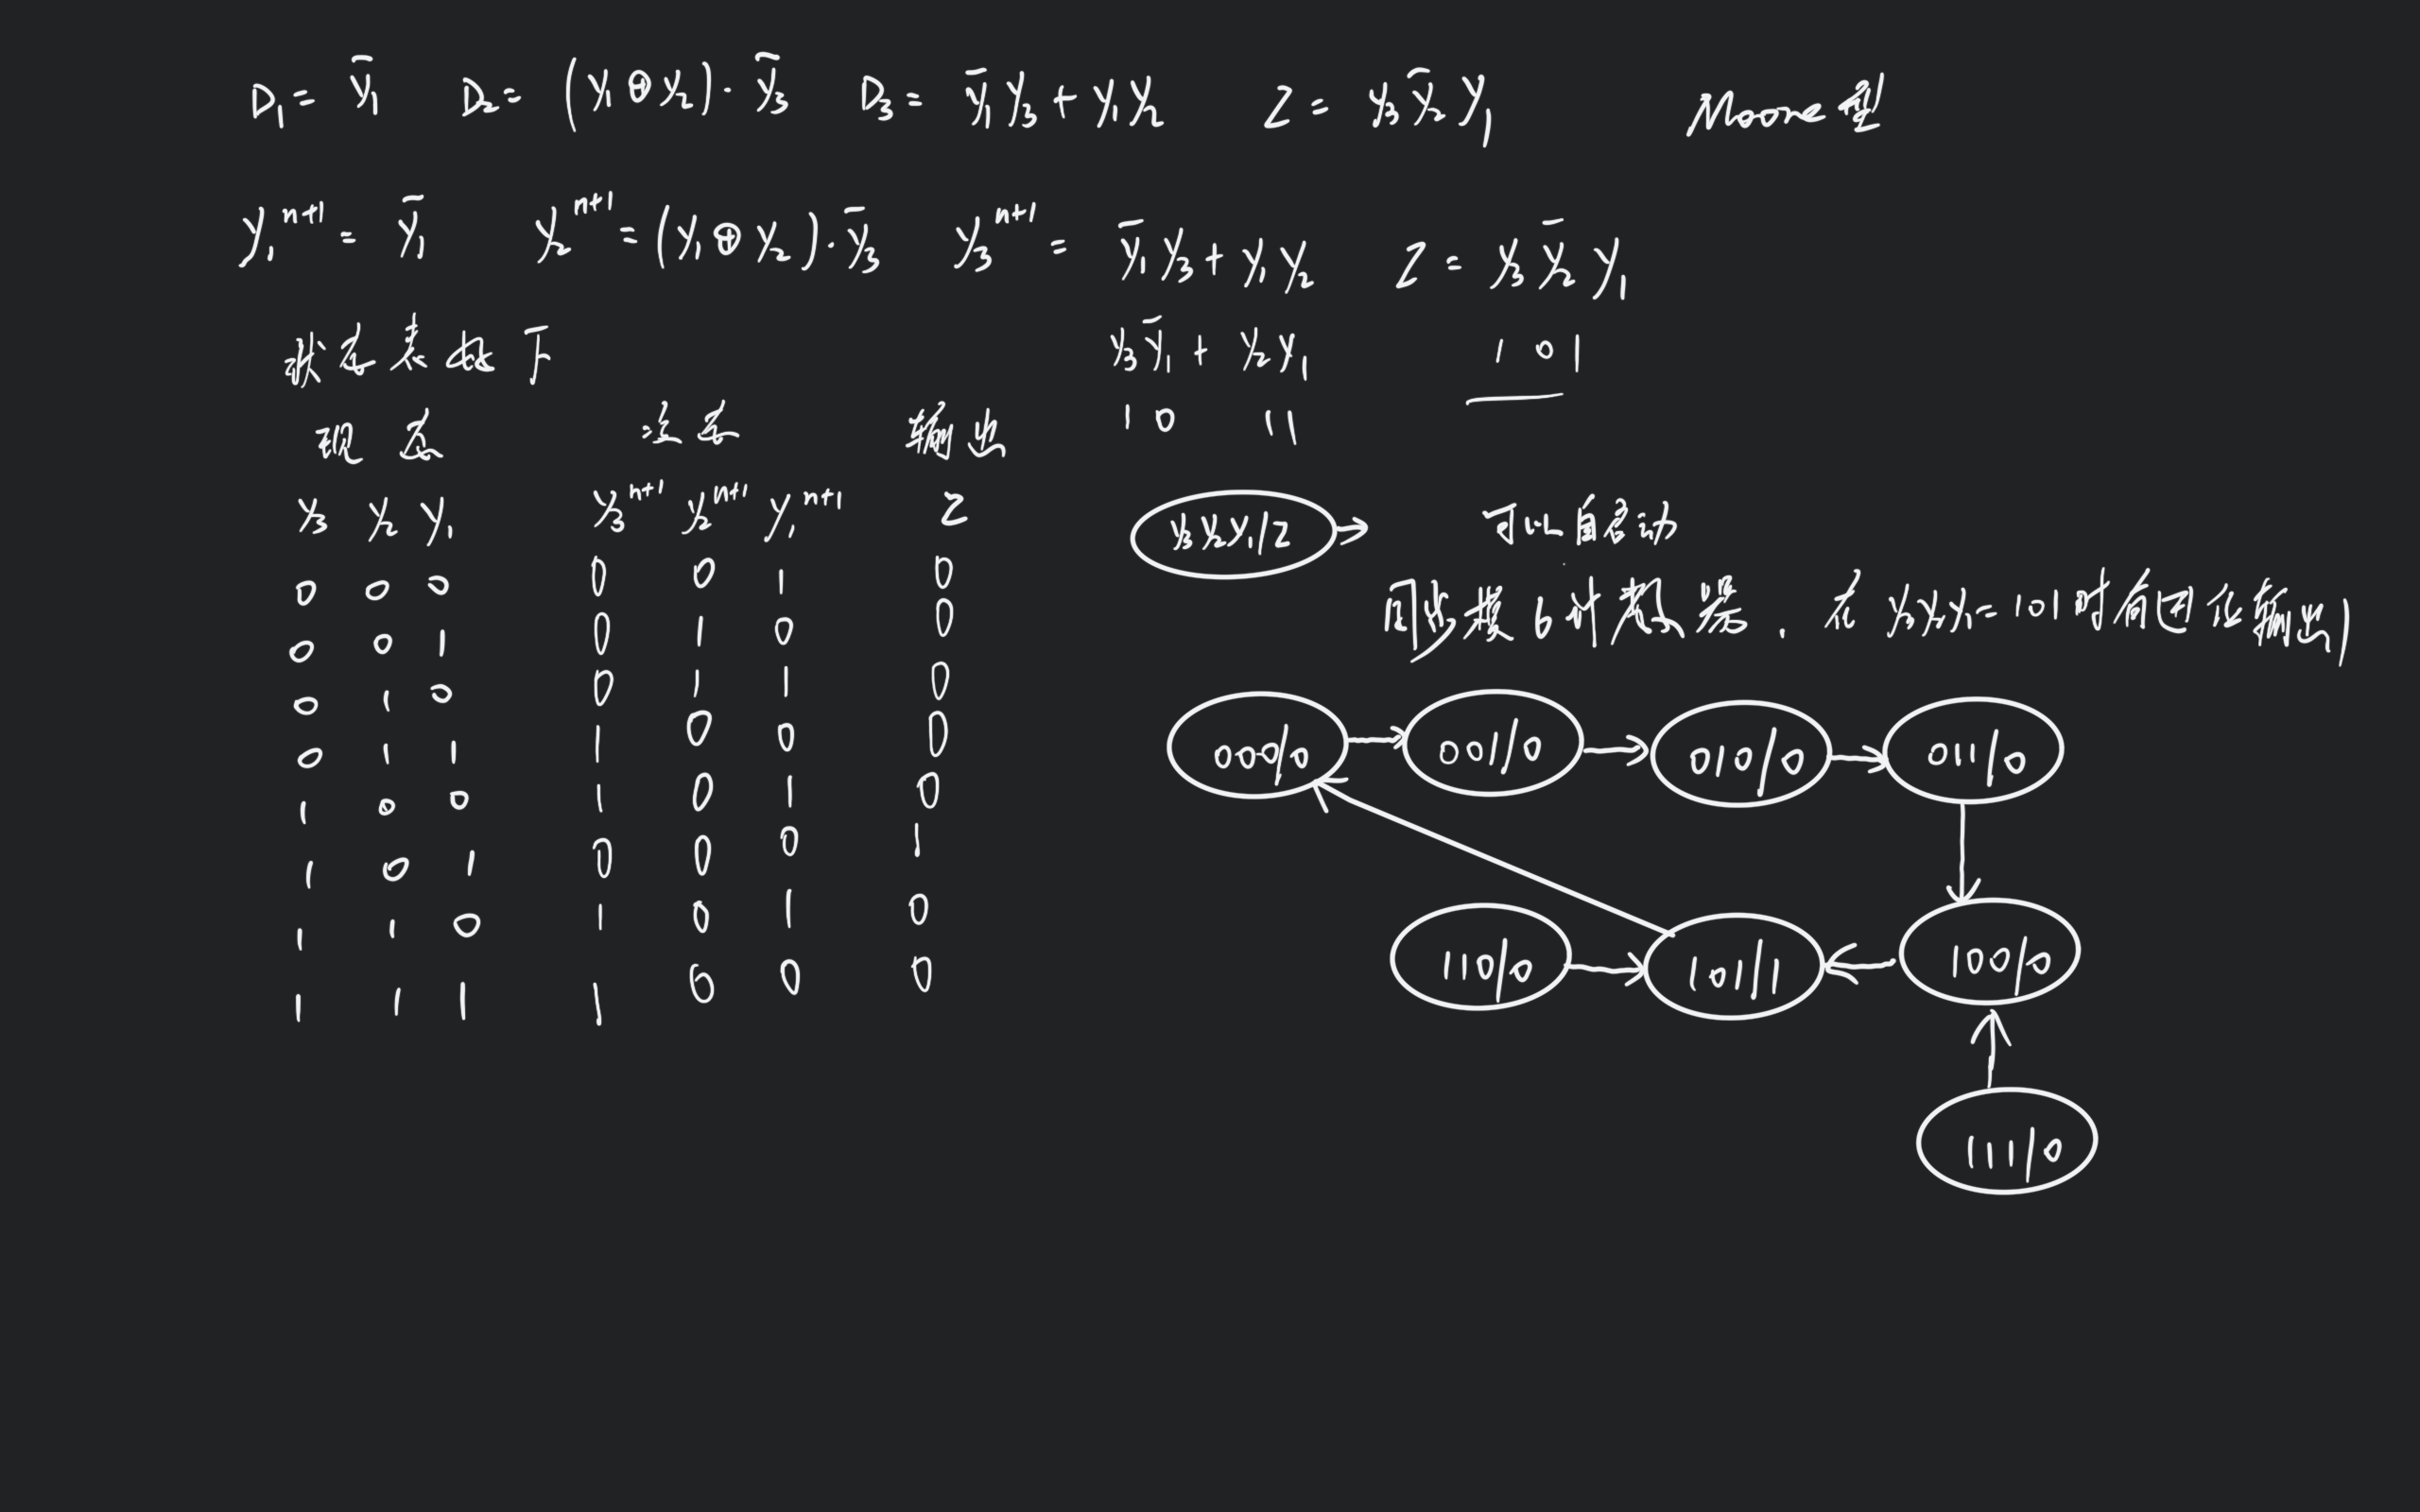 D₁ = ȳ₁ D₂ = (y₁ ⊕ y₂)·ȳ₃ D₃ = ȳ₁y₃ + y₁y₂ Z = y₃ȳ₂y₁ Moore型
y₁ⁿ⁺¹ = ȳ₁ y₂ⁿ⁺¹ = (y₁ ⊕ y₂)·ȳ₃ y₃ⁿ⁺¹ = ȳ₁y₃ + y₁y₂ Z = y₃ȳ₂y₁
状态表如下 y₃ȳ₁ + y₂y₁ 1 0 1
现态 次态 输出 1 0 1 1
y₃ y₂ y₁ y₃ⁿ⁺¹ y₂ⁿ⁺¹ y₁ⁿ⁺¹ Z
0 0 0 0 0 1 0
0 0 1 0 1 0 0
0 1 0 0 1 1 0
0 1 1 1 0 0 0
1 0 0 1 0 1 0
1 0 1 0 0 0 1
1 1 0 1 0 1 0
1 1 1 1 0 0 0
y₃y₂y₁/Z → 可以自启动
同步模6计数器. 在 y₃y₂y₁=101时有进位输出
000/0 001/0 010/0 011/0
110/0 101/1 100/0
111/0